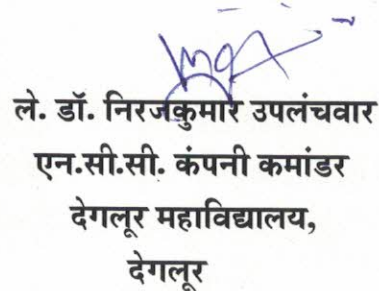 ले. डॉ. निरजकुमार उपलंचवार
एन.सी.सी. कंपनी कमांडर
देगलूर महाविद्यालय,
देगलूर